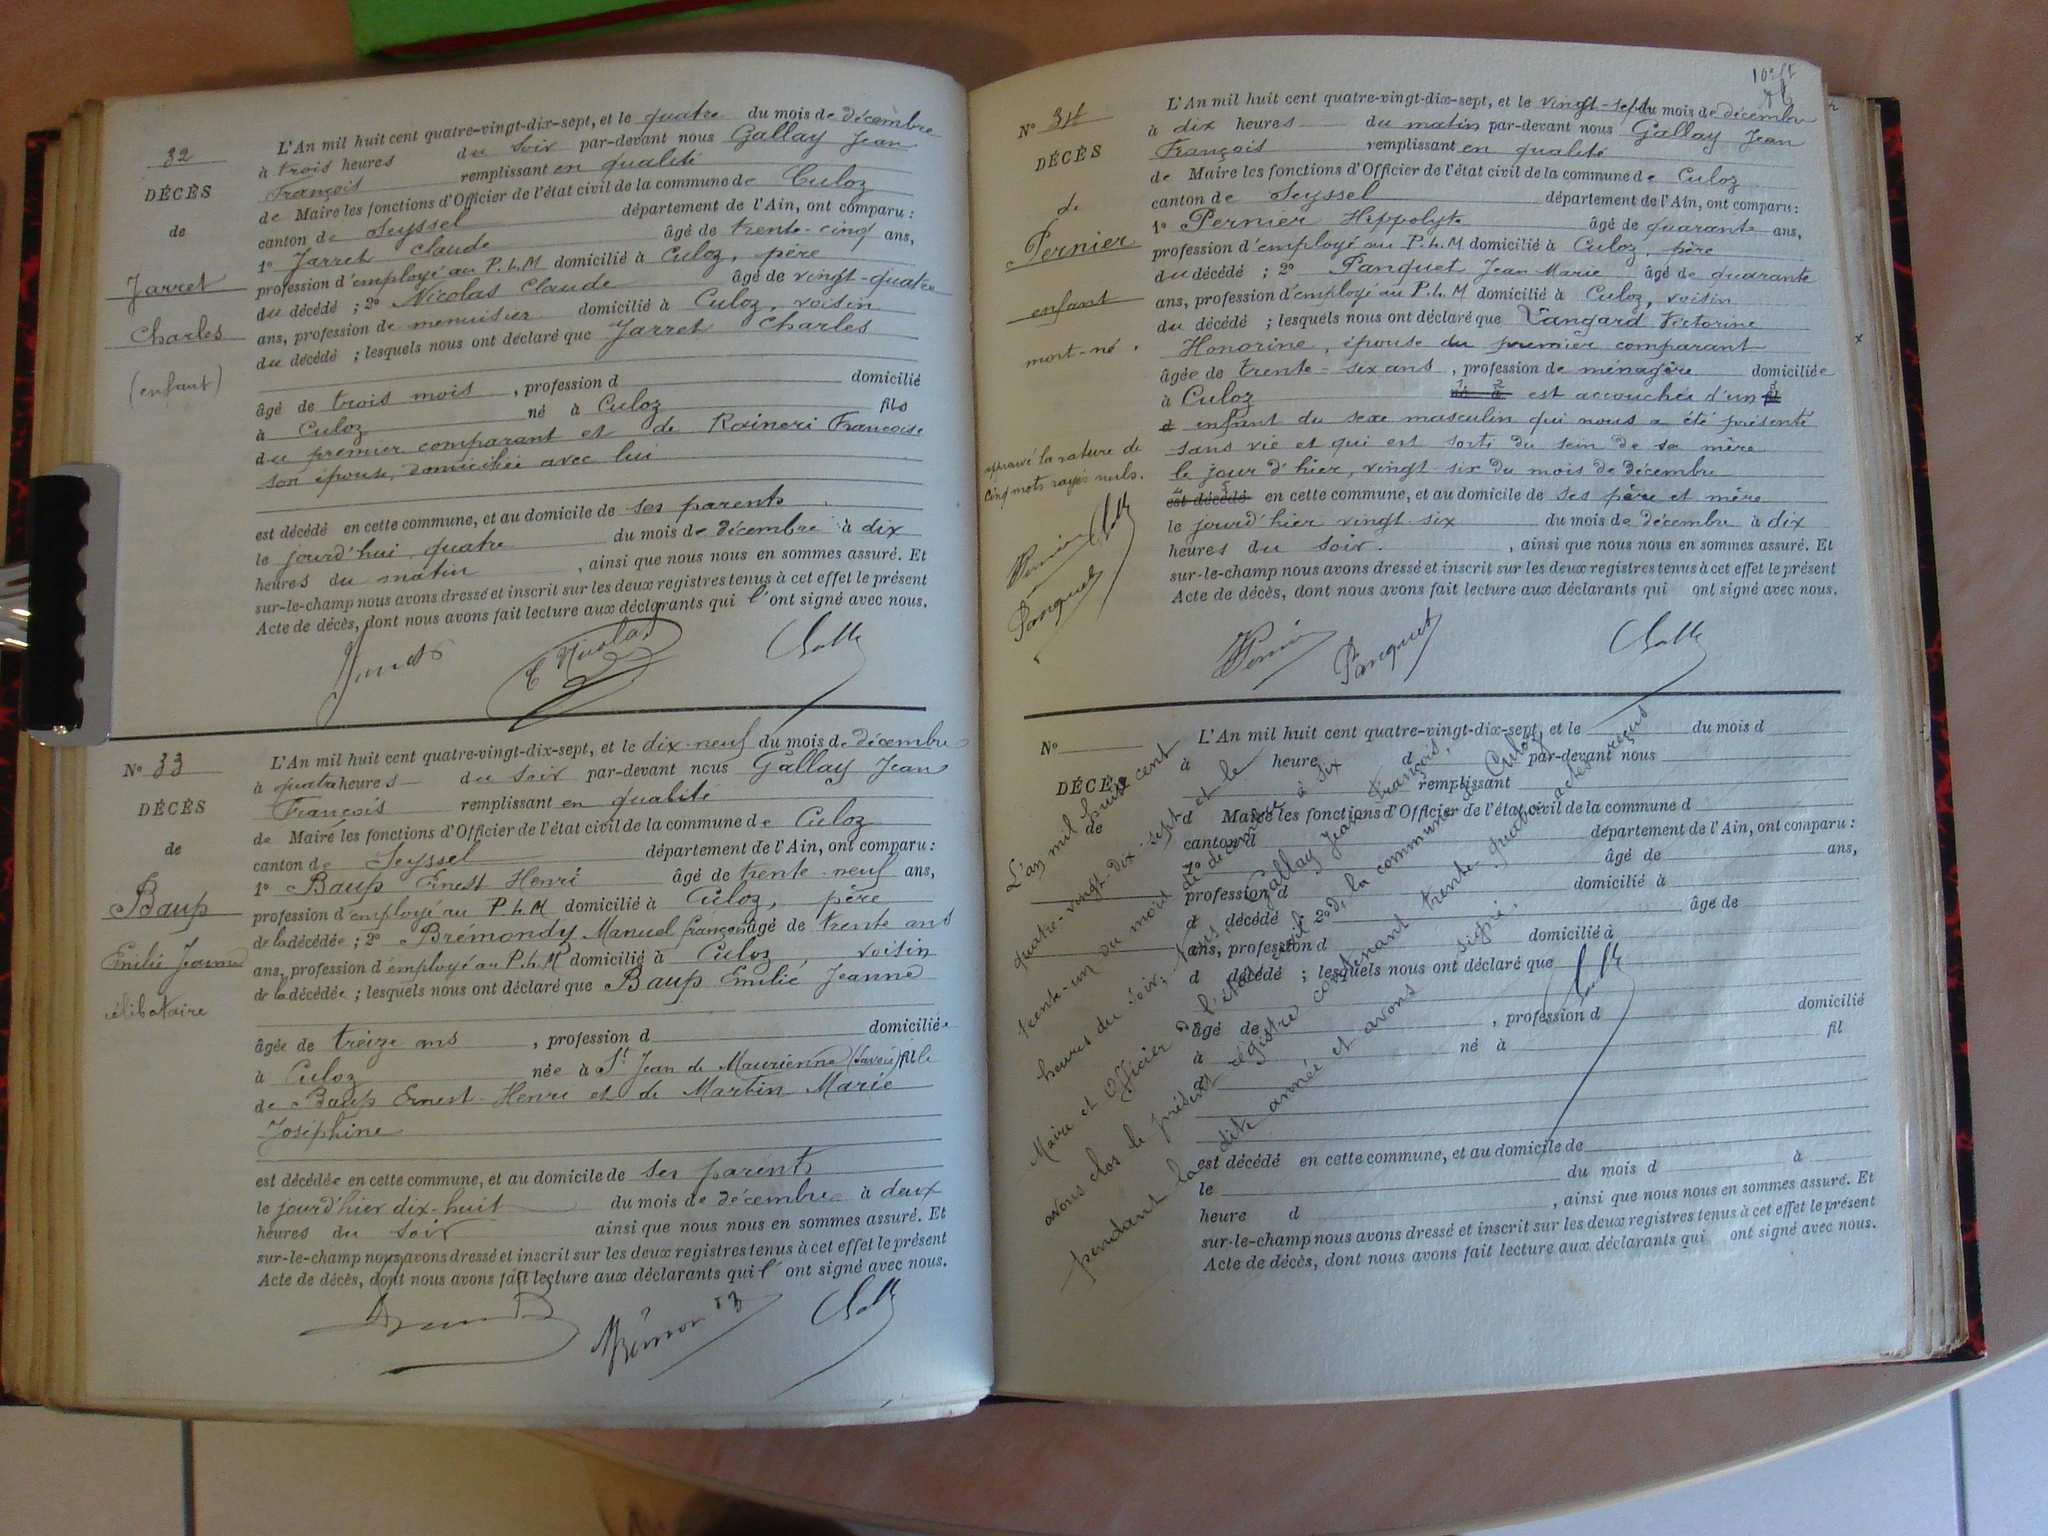 32
DÉCÈS
de
Jarret
Charles
(enfant)
L'An mil huit cent quatre-vingt-dix-sept, et le quatre du mois de décembre
à trois heures du soir par-devant nous Gallay Jean
François remplissant en qualité
de Maire les fonctions d'Officier de l'état civil de la commune de Culoz
canton de Seyssel département de l'Ain, ont comparu :
1° Jarret Claude âgé de trente-cinq ans,
profession d'employé au P.L.M domicilié à Culoz, père
du décédé ; 2° Nicolas Claude âgé de vingt-quatre
ans, profession de menuisier domicilié à Culoz, voisin
du décédé ; lesquels nous ont déclaré que Jarret Charles
âgé de trois mois, profession d domicilié
à Culoz né à Culoz fils
du premier comparant et de Raineri Françoise
son épouse, domiciliée avec lui
est décédé en cette commune, et au domicile de ses parents
le jourd'hui quatre du mois de décembre à dix
heures du matin, ainsi que nous nous en sommes assuré. Et
sur-le-champ nous avons dressé et inscrit sur les deux registres tenus à cet effet le présent
Acte de décès, dont nous avons fait lecture aux déclarants qui l'ont signé avec nous.
C Nicolas
N° 33
DÉCÈS
de
Baup
Emilie Jeanne
célibataire
L'An mil huit cent quatre-vingt-dix-sept, et le dix-neuf du mois de décembre
à quatre heures du soir par-devant nous Gallay Jean
François remplissant en qualité
de Maire les fonctions d'Officier de l'état civil de la commune de Culoz
canton de Seyssel département de l'Ain, ont comparu :
1° Baup Ernest Henri âgé de trente-neuf ans,
profession d'employé au P.L.M domicilié à Culoz, père
de la décédée ; 2° Brémondy Manuel françois âgé de trente ans
ans, profession d'employé au P.L.M domicilié à Culoz, voisin
de la décédée ; lesquels nous ont déclaré que Baup Emilie Jeanne
âgée de treize ans, profession d domiciliée
à Culoz née à St Jean de Maurienne (Savoie) fille
de Baup Ernest Henri et de Martin Marie
Joséphine
est décédée en cette commune, et au domicile de ses parents
le jourd'hier dix-huit du mois de décembre à deux
heures du soir ainsi que nous nous en sommes assuré. Et
sur-le-champ nous avons dressé et inscrit sur les deux registres tenus à cet effet le présent
Acte de décès, dont nous avons fait lecture aux déclarants qui l'ont signé avec nous.
N° 34
DÉCÈS
de
Pernier
enfant
mort-né.
approuvé la rature de
cinq mots rayés nuls.
Pernier
Panquet
L'An mil huit cent quatre-vingt-dix-sept, et le vingt-sept du mois de décembre
à dix heures du matin par-devant nous Gallay Jean
François remplissant en qualité
de Maire les fonctions d'Officier de l'état civil de la commune de Culoz
canton de Seyssel département de l'Ain, ont comparu :
1° Pernier Hippolyte âgé de quarante ans,
profession d'employé au P.L.M domicilié à Culoz, père
du décédé ; 2° Panquet Jean Marie âgé de quarante
ans, profession d'employé au P.L.M domicilié à Culoz, voisin
du décédé ; lesquels nous ont déclaré que Vangard Victorine
Honorine, épouse du premier comparant
âgée de trente-six ans, profession de ménagère domiciliée
à Culoz est accouchée d'un
enfant du sexe masculin qui nous a été présenté
sans vie et qui est sorti du sein de sa mère
le jour d'hier, vingt six du mois de décembre
est décédé en cette commune, et au domicile de ses père et mère
le jourd'hier vingt six du mois de décembre à dix
heures du soir., ainsi que nous nous en sommes assuré. Et
sur-le-champ nous avons dressé et inscrit sur les deux registres tenus à cet effet le présent
Acte de décès, dont nous avons fait lecture aux déclarants qui ont signé avec nous.
Pernier Panquet
N°
DÉCÈS
de
L'An mil huit cent quatre-vingt-dix-sept, et le du mois d
à heure d par-devant nous
remplissant
d Maire les fonctions d'Officier de l'état civil de la commune d
canton d département de l'Ain, ont comparu :
1° âgé de ans,
profession d domicilié à
d décédé ; 2° âgé de
ans, profession d domicilié à
d décédé ; lesquels nous ont déclaré que
âgé de, profession d domicilié
à né à fil
d
est décédé en cette commune, et au domicile de
le du mois d à
heure d, ainsi que nous nous en sommes assuré. Et
sur-le-champ nous avons dressé et inscrit sur les deux registres tenus à cet effet le présent
Acte de décès, dont nous avons fait lecture aux déclarants qui ont signé avec nous.
L'an mil huit cent
quatre-vingt-dix-sept et le
trente-un du mois de décembre à six
heures du soir, nous Gallay Jean François,
Maire et Officier de l'état civil de la commune de Culoz
avons clos le présent registre contenant trente-quatre actes reçus
pendant la dite année et avons signé.